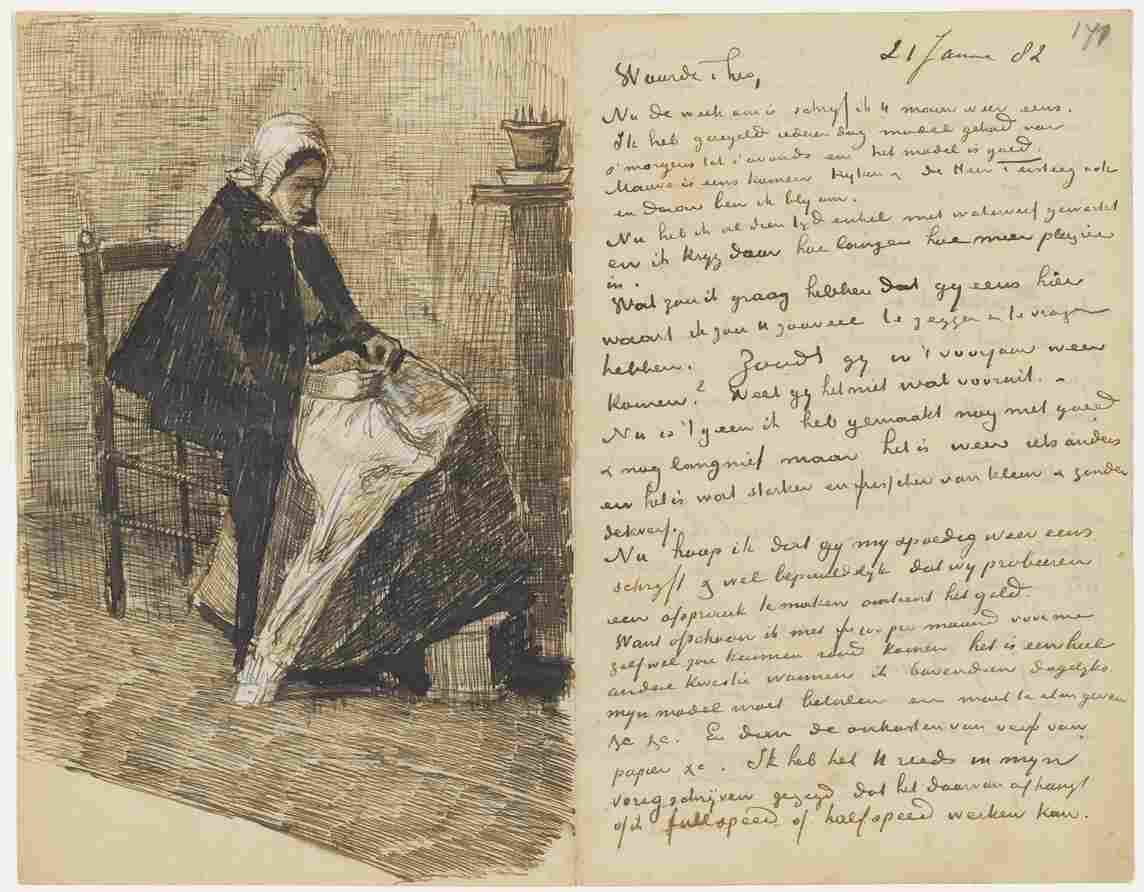 171
21 Januar 82
Waarde Theo,
Nu de week om is schrijf ik U maar weer eens.
Ik heb geregeld iederen dag model gehad van
s'morgens tot s'avonds en het model is goed.
Mauve is eens komen kijken & de Heer Tersteeg ook
en daar ben ik blij om.
Nu heb ik al dien tijd enkel met waterverf gewerkt
en ik krijg daar hoe langer hoe meer plezier
in.
Wat zou ik graag hebben dat gy eens hier
waart ik zou U zooveel te zeggen en te vragen
hebben. Zoudt gy in 't voorjaar weer
komen? Weet gy het niet wat vooruit. –
Nu is 't geen ik heb gemaakt nog niet goed
& nog lang niet maar het is weer iets anders
en het is wat sterker en frisscher van kleur & zonder
dekverf.
Nu hoop ik dat gy my spoedig weer eens
schryft & wel bepaaldelyk dat wy probeeren
een afspraak te maken omtrent het geld.
Want ofschoon ik met per maand voor me
zelf wel zou kunnen rond komen het is een heel
andere kwestie wanneer ik bovendien dagelyks
myn model moet betalen en moet te eten geven
&c &c. En dan de onkosten van verf van
papier &c. Ik heb het U reeds in myn
vorig schrijven gezegd dat het daarvan afhangt
of ik full speed of half speed werken kan.